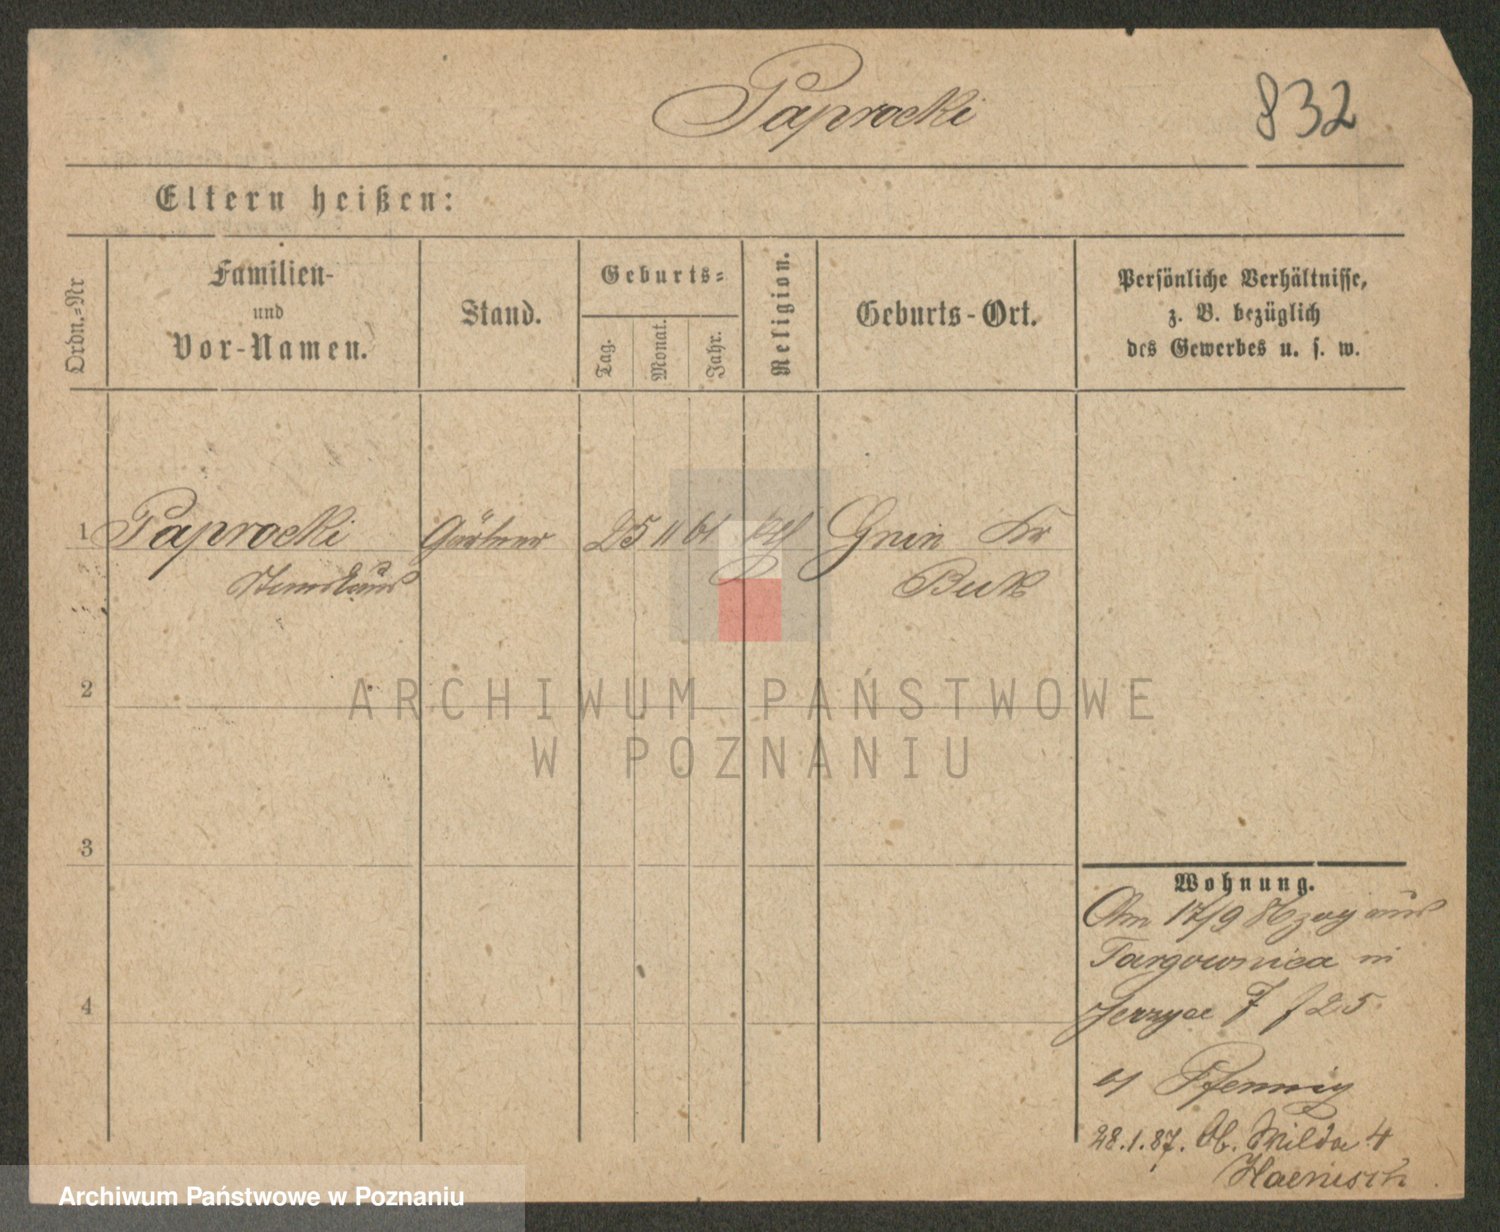 Paprocki
832
Eltern heißen:
Ordn.=Nr
Familien-
und
Vor-Namen.
Stand.
Geburts=
Tag.
Monat.
Jahr.
Religion.
Geburts-Ort.
Persönliche Verhältnisse,
z. B. bezüglich
des Gewerbes u. s. w.
1 Paprocki Gärtner 25 11 61 Gnin Kr
Buk
2
3
4
Wohnung.
Am 17/9 86 zog aus
Targownica in
Jerzyce 25
b/ Pfennig
28.1.87. Ob. Wilda 4
Haenisch
ARCHIWUM PAŃSTWOWE
W POZNANIU
Archiwum Państwowe w Poznaniu